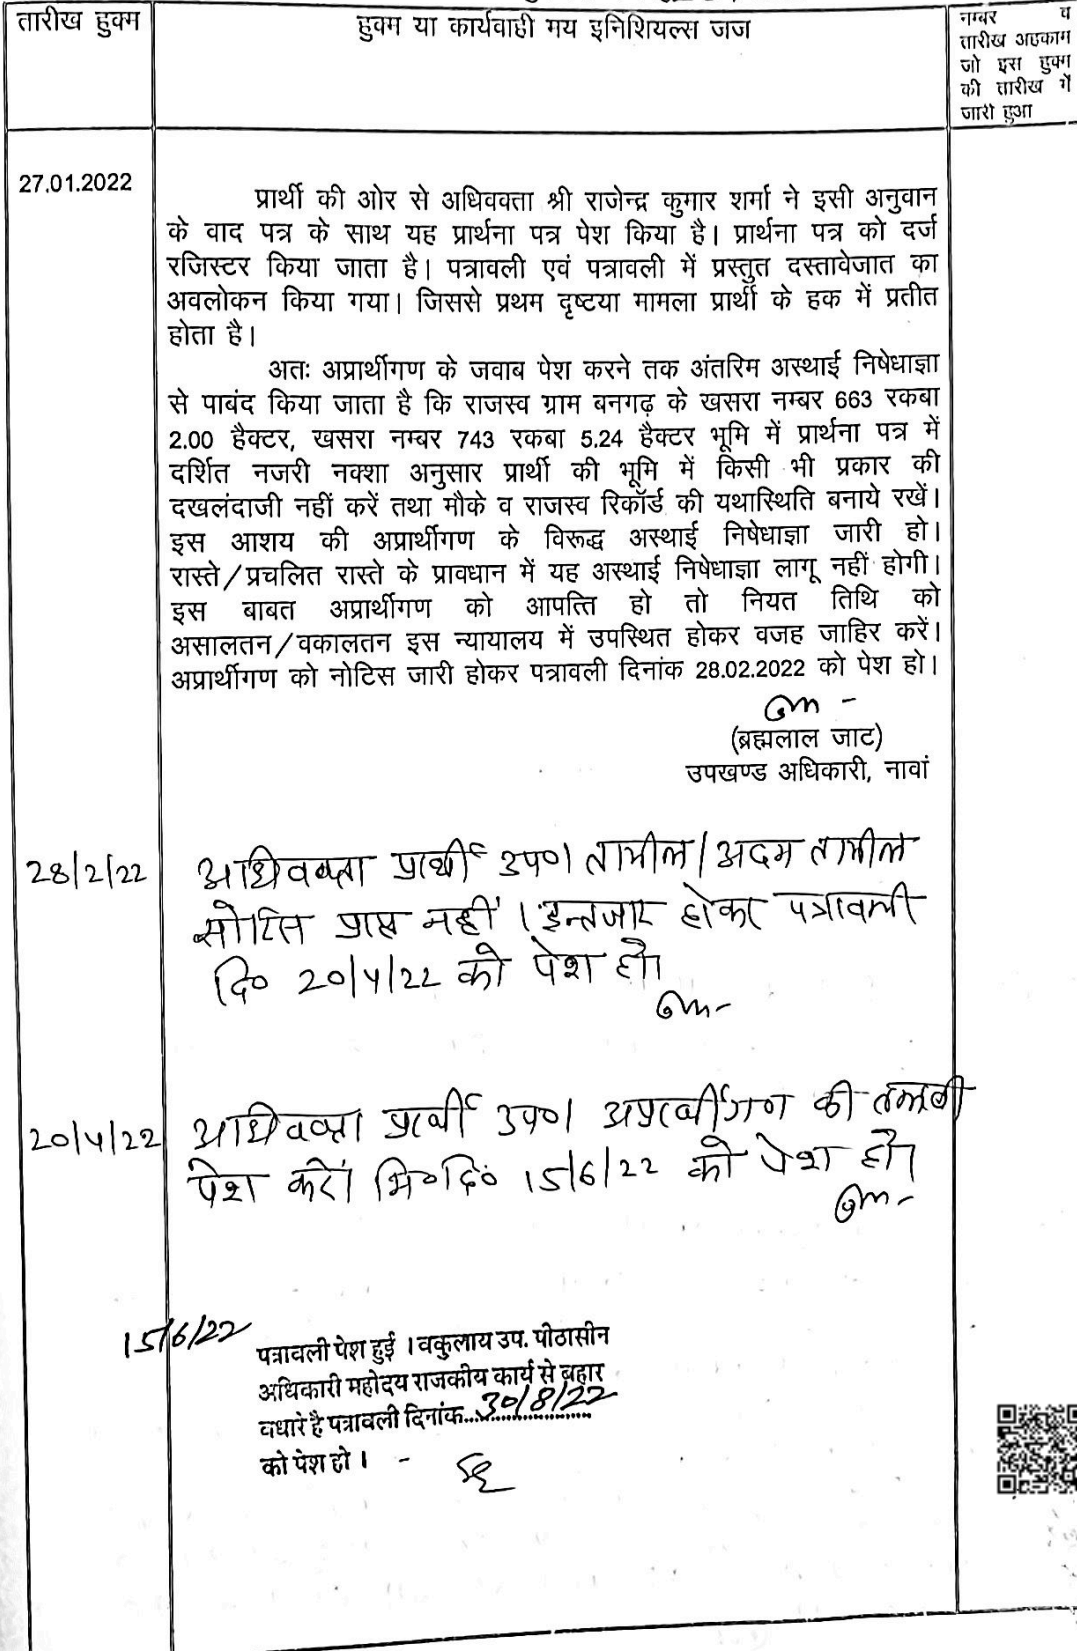 तारीख हुक्म
हुक्म या कार्यवाही मय इनिशियल्स जज
नम्बर व
तारीख अहकाम
जो इस हुक्म
की तारीख में
जारी हुआ
27.01.2022
प्रार्थी की ओर से अधिवक्ता श्री राजेन्द्र कुमार शर्मा ने इसी अनुवान
के वाद पत्र के साथ यह प्रार्थना पत्र पेश किया है। प्रार्थना पत्र को दर्ज
रजिस्टर किया जाता है। पत्रावली एवं पत्रावली में प्रस्तुत दस्तावेजात का
अवलोकन किया गया। जिससे प्रथम दृष्टया मामला प्रार्थी के हक में प्रतीत
होता है।
अतः अप्रार्थीगण के जवाब पेश करने तक अंतरिम अस्थाई निषेधाज्ञा
से पाबंद किया जाता है कि राजस्व ग्राम बनगढ़ के खसरा नम्बर 663 रकबा
2.00 हैक्टर, खसरा नम्बर 743 रकबा 5.24 हैक्टर भूमि में प्रार्थना पत्र में
दर्शित नजरी नक्शा अनुसार प्रार्थी की भूमि में किसी भी प्रकार की
दखलंदाजी नहीं करें तथा मौके व राजस्व रिकॉर्ड की यथास्थिति बनाये रखें।
इस आशय की अप्रार्थीगण के विरूद्ध अस्थाई निषेधाज्ञा जारी हो।
रास्ते/प्रचलित रास्ते के प्रावधान में यह अस्थाई निषेधाज्ञा लागू नहीं होगी।
इस बाबत अप्रार्थीगण को आपत्ति हो तो नियत तिथि को
असालतन/वकालतन इस न्यायालय में उपस्थित होकर वजह जाहिर करें।
अप्रार्थीगण को नोटिस जारी होकर पत्रावली दिनांक 28.02.2022 को पेश हो।
(ब्रह्मलाल जाट)
उपखण्ड अधिकारी, नावां
28/2/22
अधिवक्ता प्रार्थी उप० तामील/अदम तामील
नोटिस प्राप्त नहीं। इन्तजार होकर पत्रावली
दि० 20/4/22 को पेश हो।
20/4/22
अधिवक्ता प्रार्थी उप० अप्रार्थीगण की तलबी
पेश करें। मि०दि० 15/6/22 को पेश हो।
15/6/22
पत्रावली पेश हुई । वकुलाय उप. पीठासीन
अधिकारी महोदय राजकीय कार्य से बहार
पधारे है पत्रावली दिनांक....30/8/22
को पेश हो ।